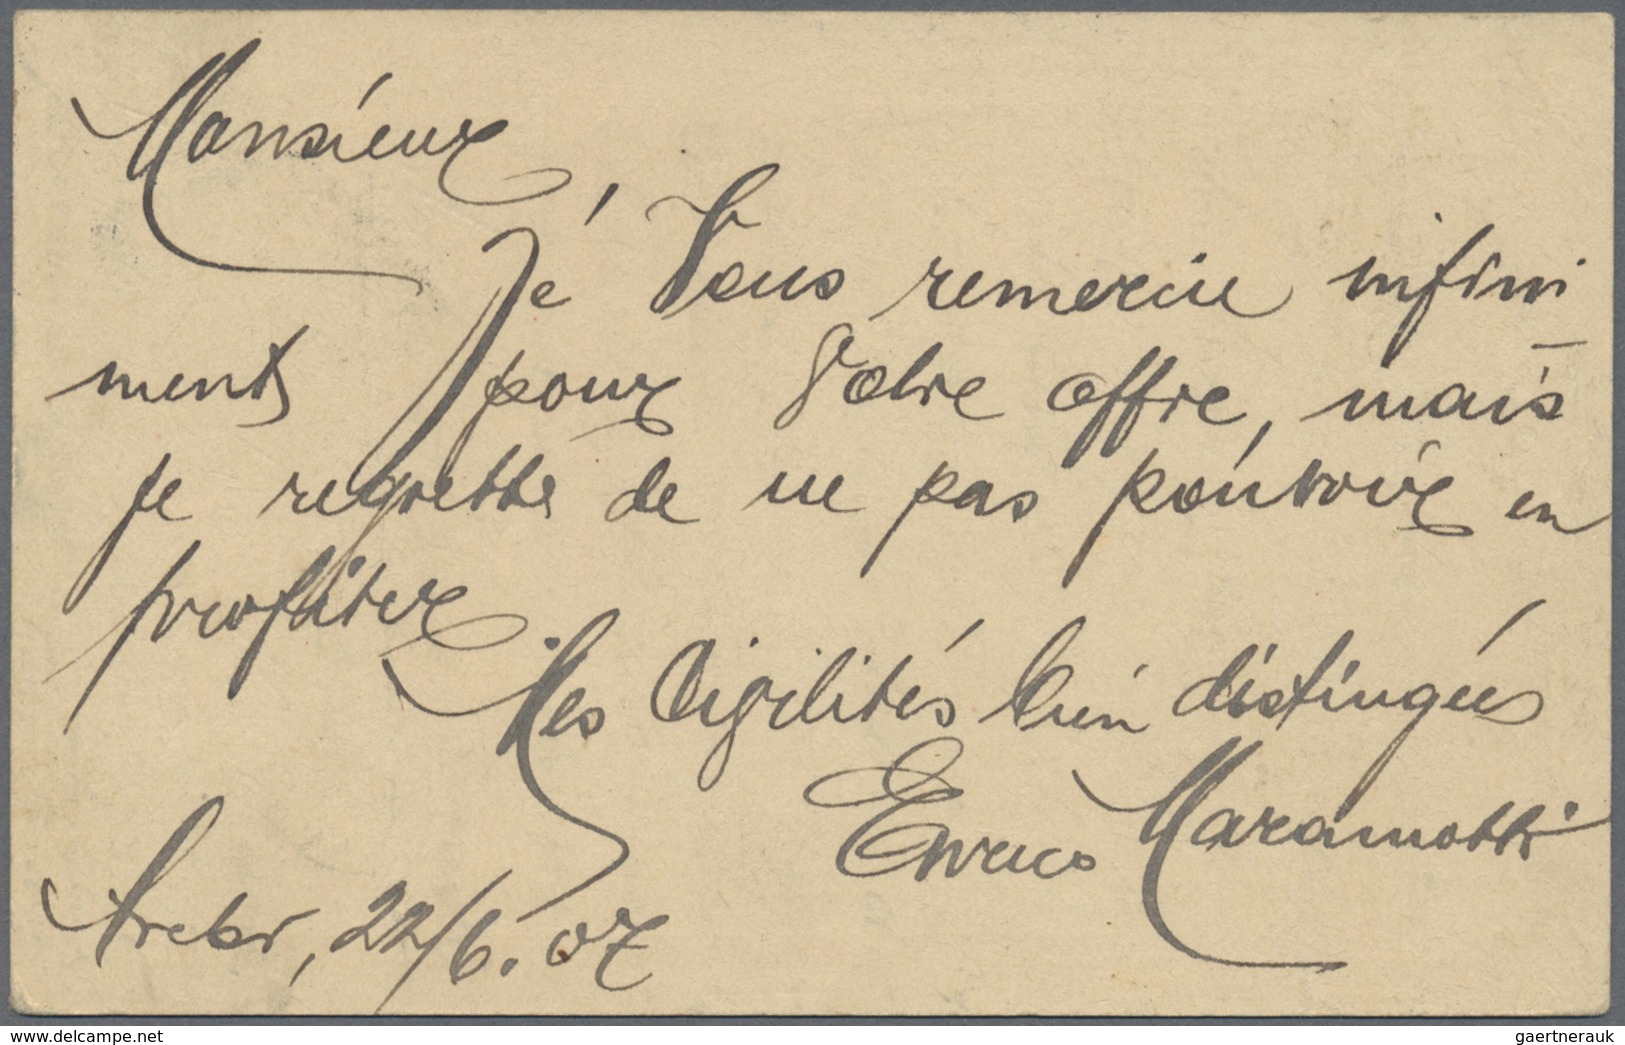 Monsieur,
Je Vous remercie infini
ments pour Votre offre, mais
je regrette de ne pas pouvoir en
profiter
Mes Civilités bien distinguées
Enrico Maramotti
22/6.07
delcampe.net
gaertnerauk